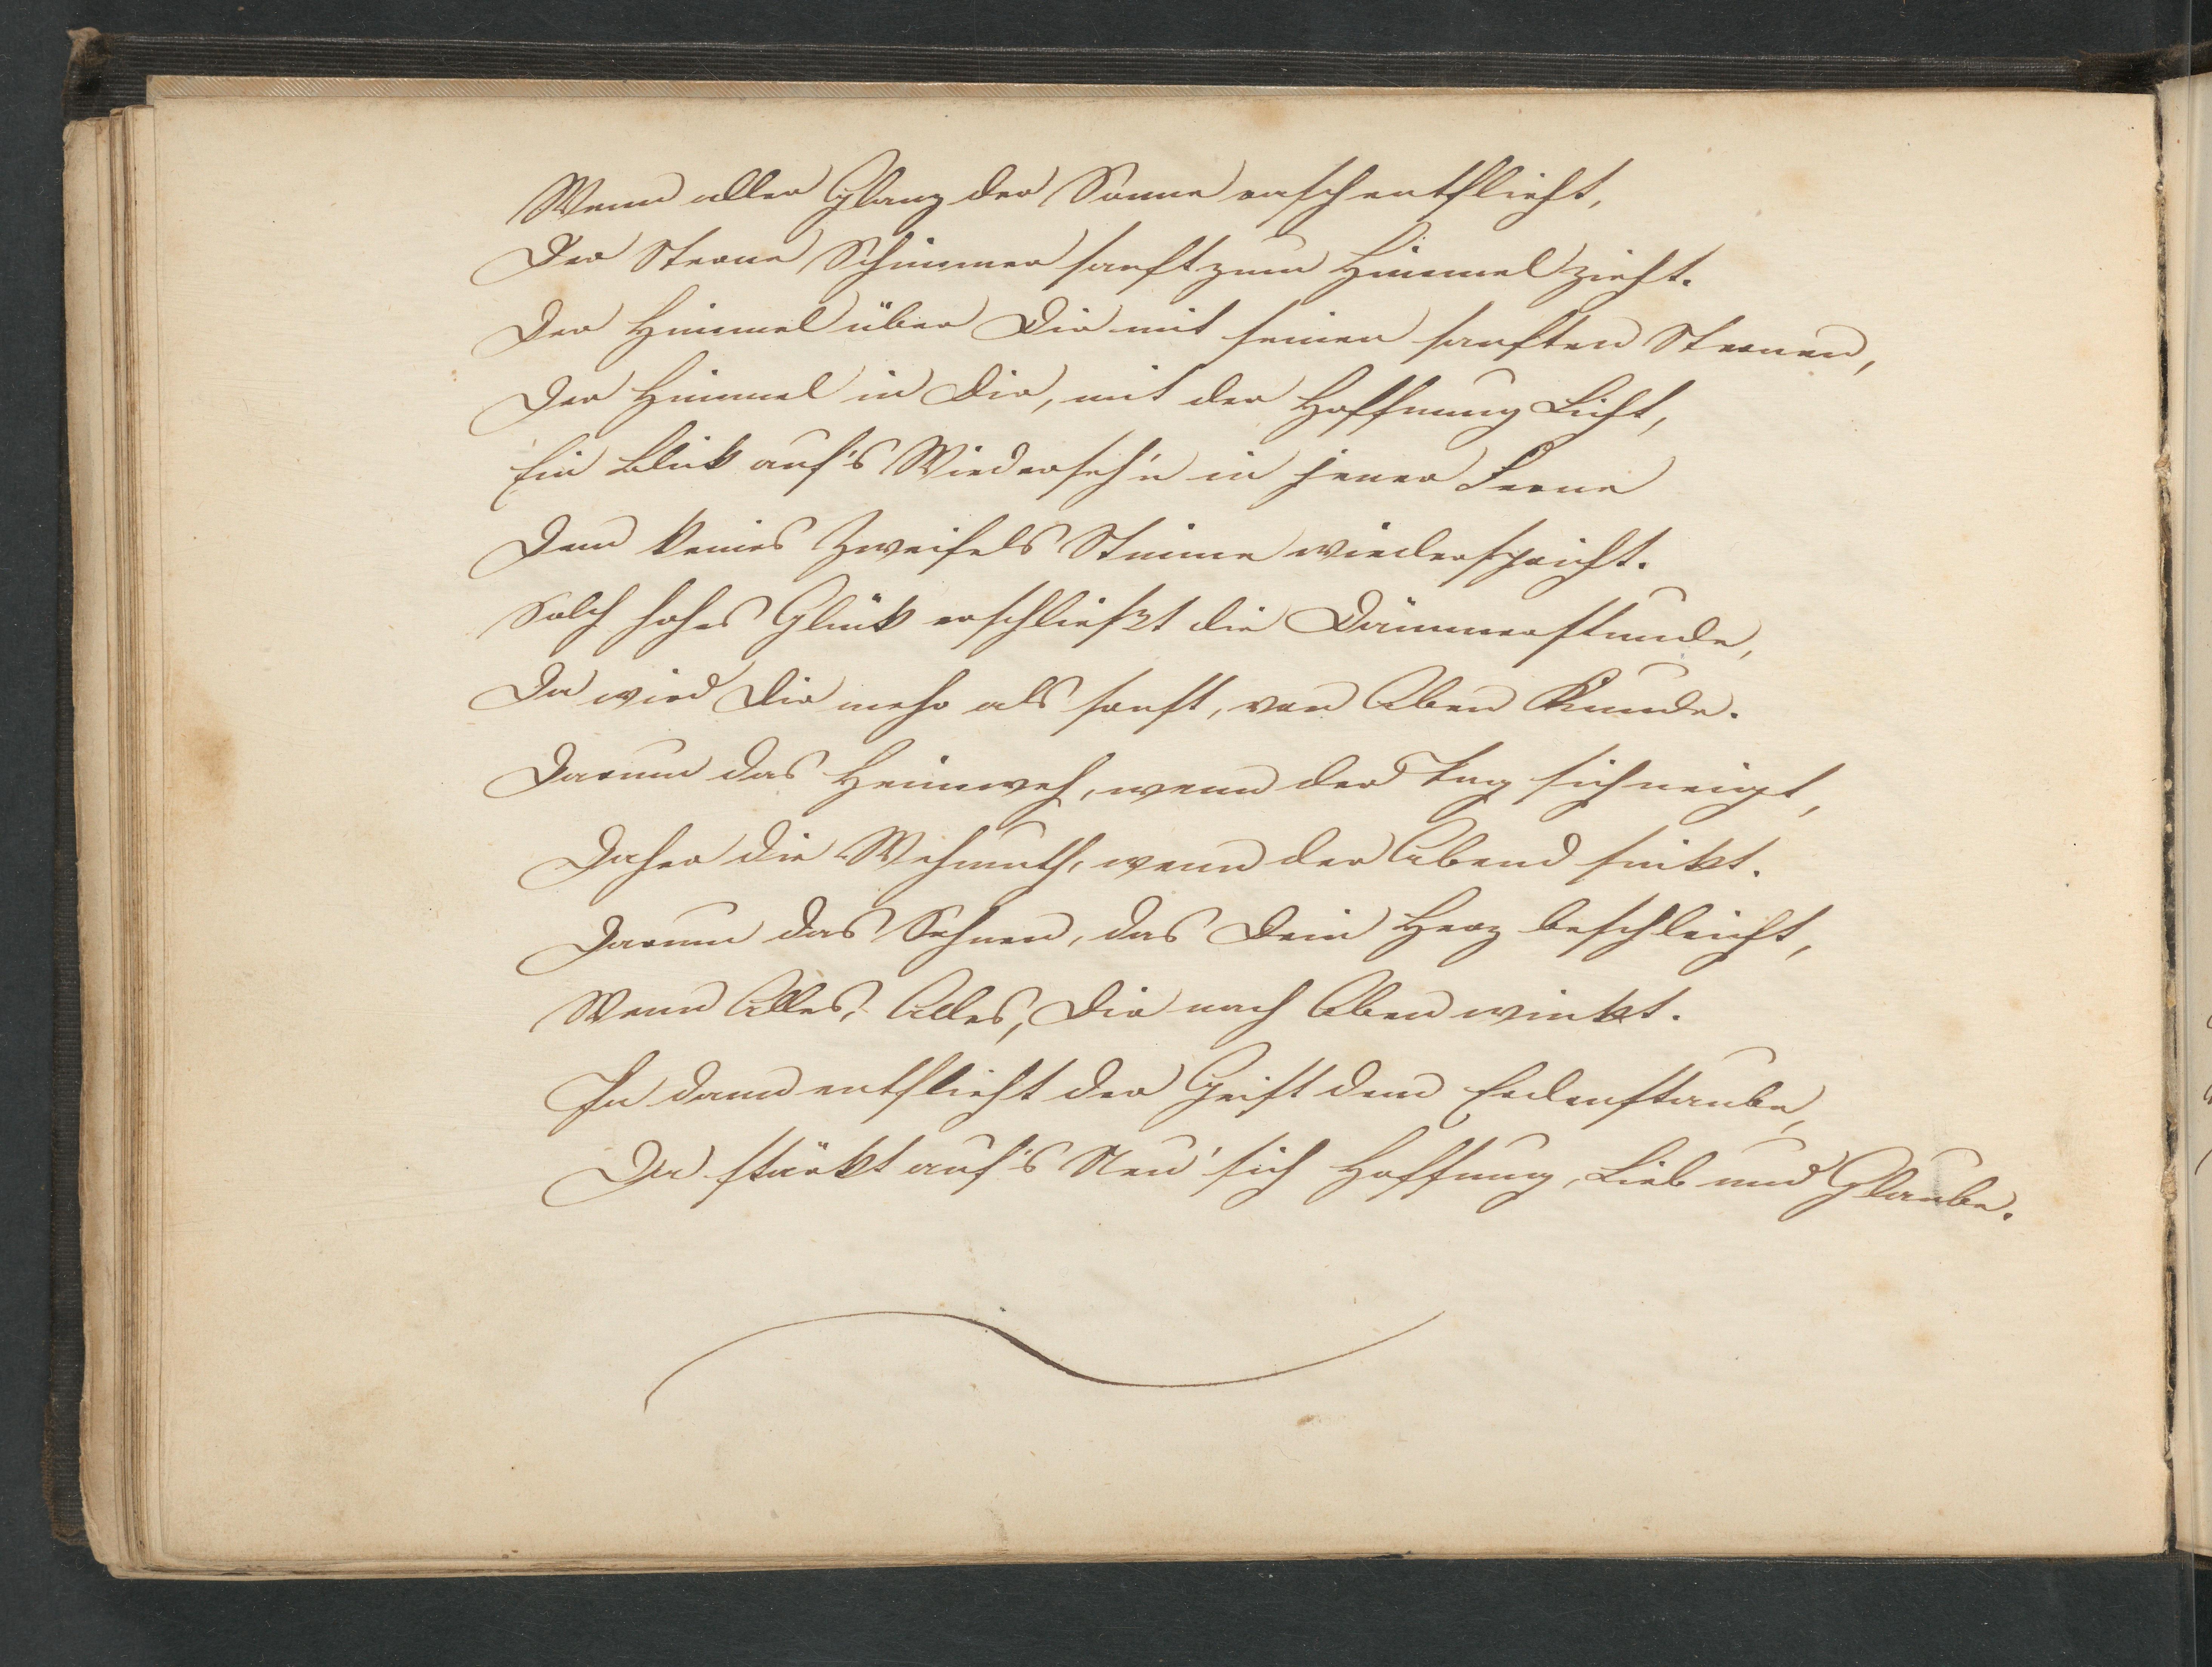 Wenn aller Glanz der Sonne rasch entflieht,
Der Sterne Schimmer sanft zum Himmel zieht.
Der Himmel über Dir mit seinen sanften Sternen,
Der Himmel in Dir, mit der Hoffnung Licht,
Ein Blick auf's Wiederseh'n in jener Ferne
Dem keines Zweifels Stimme wiederspricht.
Solch hohes Glück erschließt die Dämmerstunde,
Da wird Dir mehr als sonst, von Oben Kunde.
Darum das Heimweh, wenn der Tag sich neigt,
Daher die Wehmuth, wenn der Abend sinkt.
Darum das Sehnen, das Dein Herz beschleicht,
Wenn Alles, Alles, Dir nach Oben winkt.
Ja dann entflieht der Geist dem Erdenstaube,
Da stärkt auf's Neu' sich Hoffnung, Lieb und Glaube.